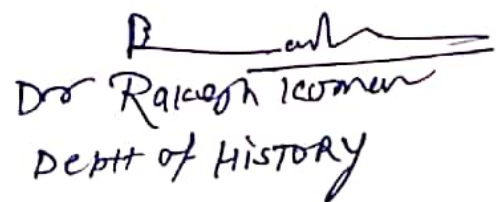 Dr Rakesh Kumar
Deptt of HISTORY